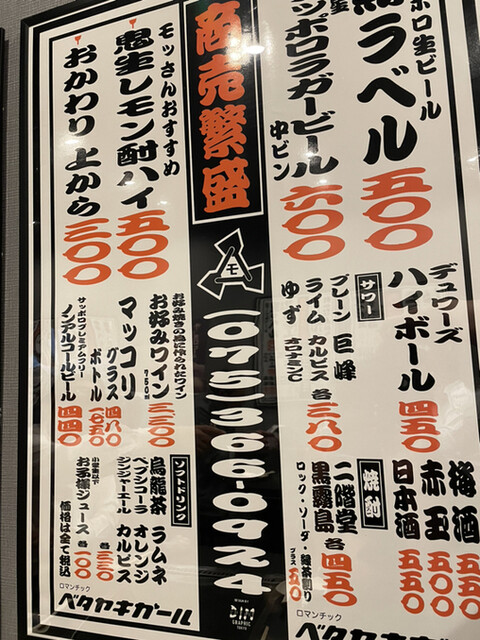 ホロ生ビール
ラベル
五〇〇
ッポロラガービール
中ビン
六〇〇
デュワーズ
ハイボール
四五〇
サワー
プレーン 巨峰
ライム カルピス
ゆず オロナミンC
各三八〇
梅酒
五五〇
赤玉
五五〇
日本酒
五五〇
焼酎
二階堂
黒霧島
各四五〇
ロック・ソーダ・緑茶割り
プラス五〇
ロマンチック
ベタヤキガール
商売繁盛
モ
(075)366-0924
DESIGN BY
DIM
GRAPHIC
TOKYO
モッさんおすすめ
鬼生レモン酎ハイ
五〇〇
おかわり上から
三〇〇
お好み焼きの為に作られたワイン
お好みワイン
750ml
三三〇〇
マッコリ
グラス 四八〇
ボトル 一〇五〇
サッポロプレミアムフリー
ノンアルコールビール
四四〇
ソフトドリンク
烏龍茶 ラムネ
ペプシコーラ オレンジ
ジンジャーエール カルピス
各三三〇
小学生以下
お子様ジュース
各一〇〇
価格は全て税込
ロマンチック
ベタヤキガール